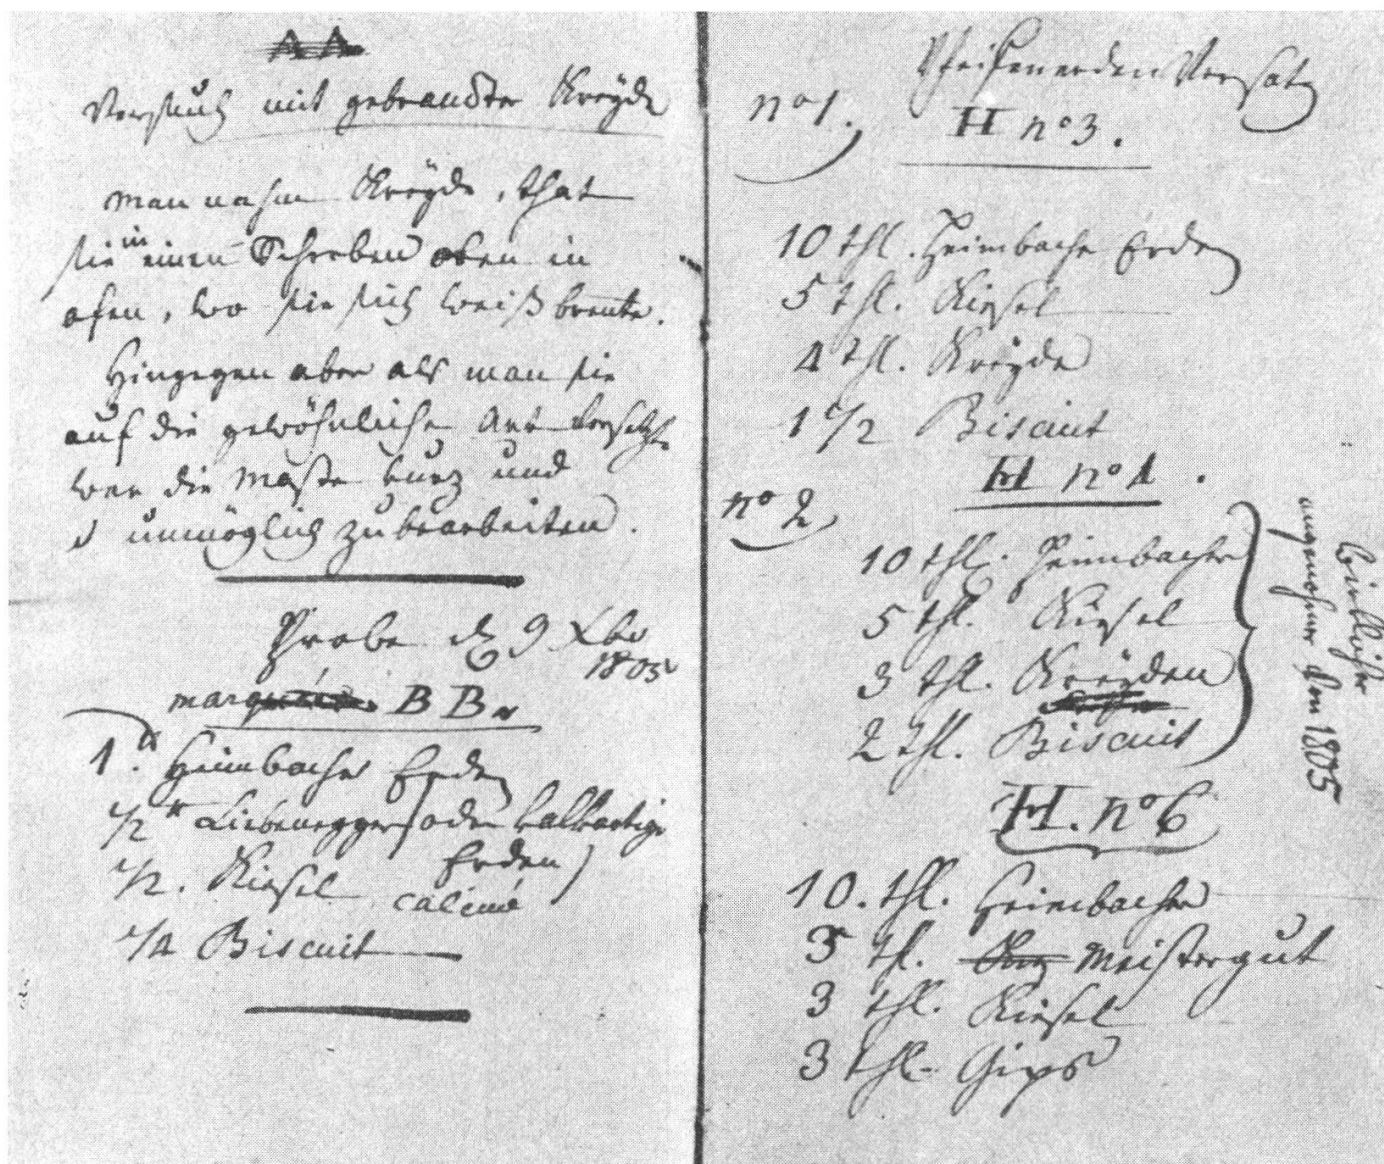 AA
Versuch mit gebrandter Kreÿde
man nahm Kreÿde, that
sie in einen Scherben oben in
ofen, wo sie sich weiß brente.
Hingegen aber als man sie
auf die gewöhnliche Art versetzte
war die Masse kurz und
unmöglich zu bearbeiten.
Probe 9 Xbr
1805
marquée BB.
1. Heimbacher Erden
1/2 Liebenegger (oder kalkartige
Erden)
1/2. Kiesel calciné
1/4 Biscuit
Pfeifenerden Versatz
no 1. H no 3.
10 thl. Heimbache Erden
5 thl. Kiesel
4 thl. Kreÿde
1 1/2 Biscuit
H no 4.
no 2
10 thl. Heimbacher
5 thl. Kiesel
3 thl. Kreÿden
2 thl. Biscuit
angenohmen den 1805
H. no 6
10. thl. Heimbacher
3 thl. Meistergut
3 thl. Kiesel
3 thl. Gips